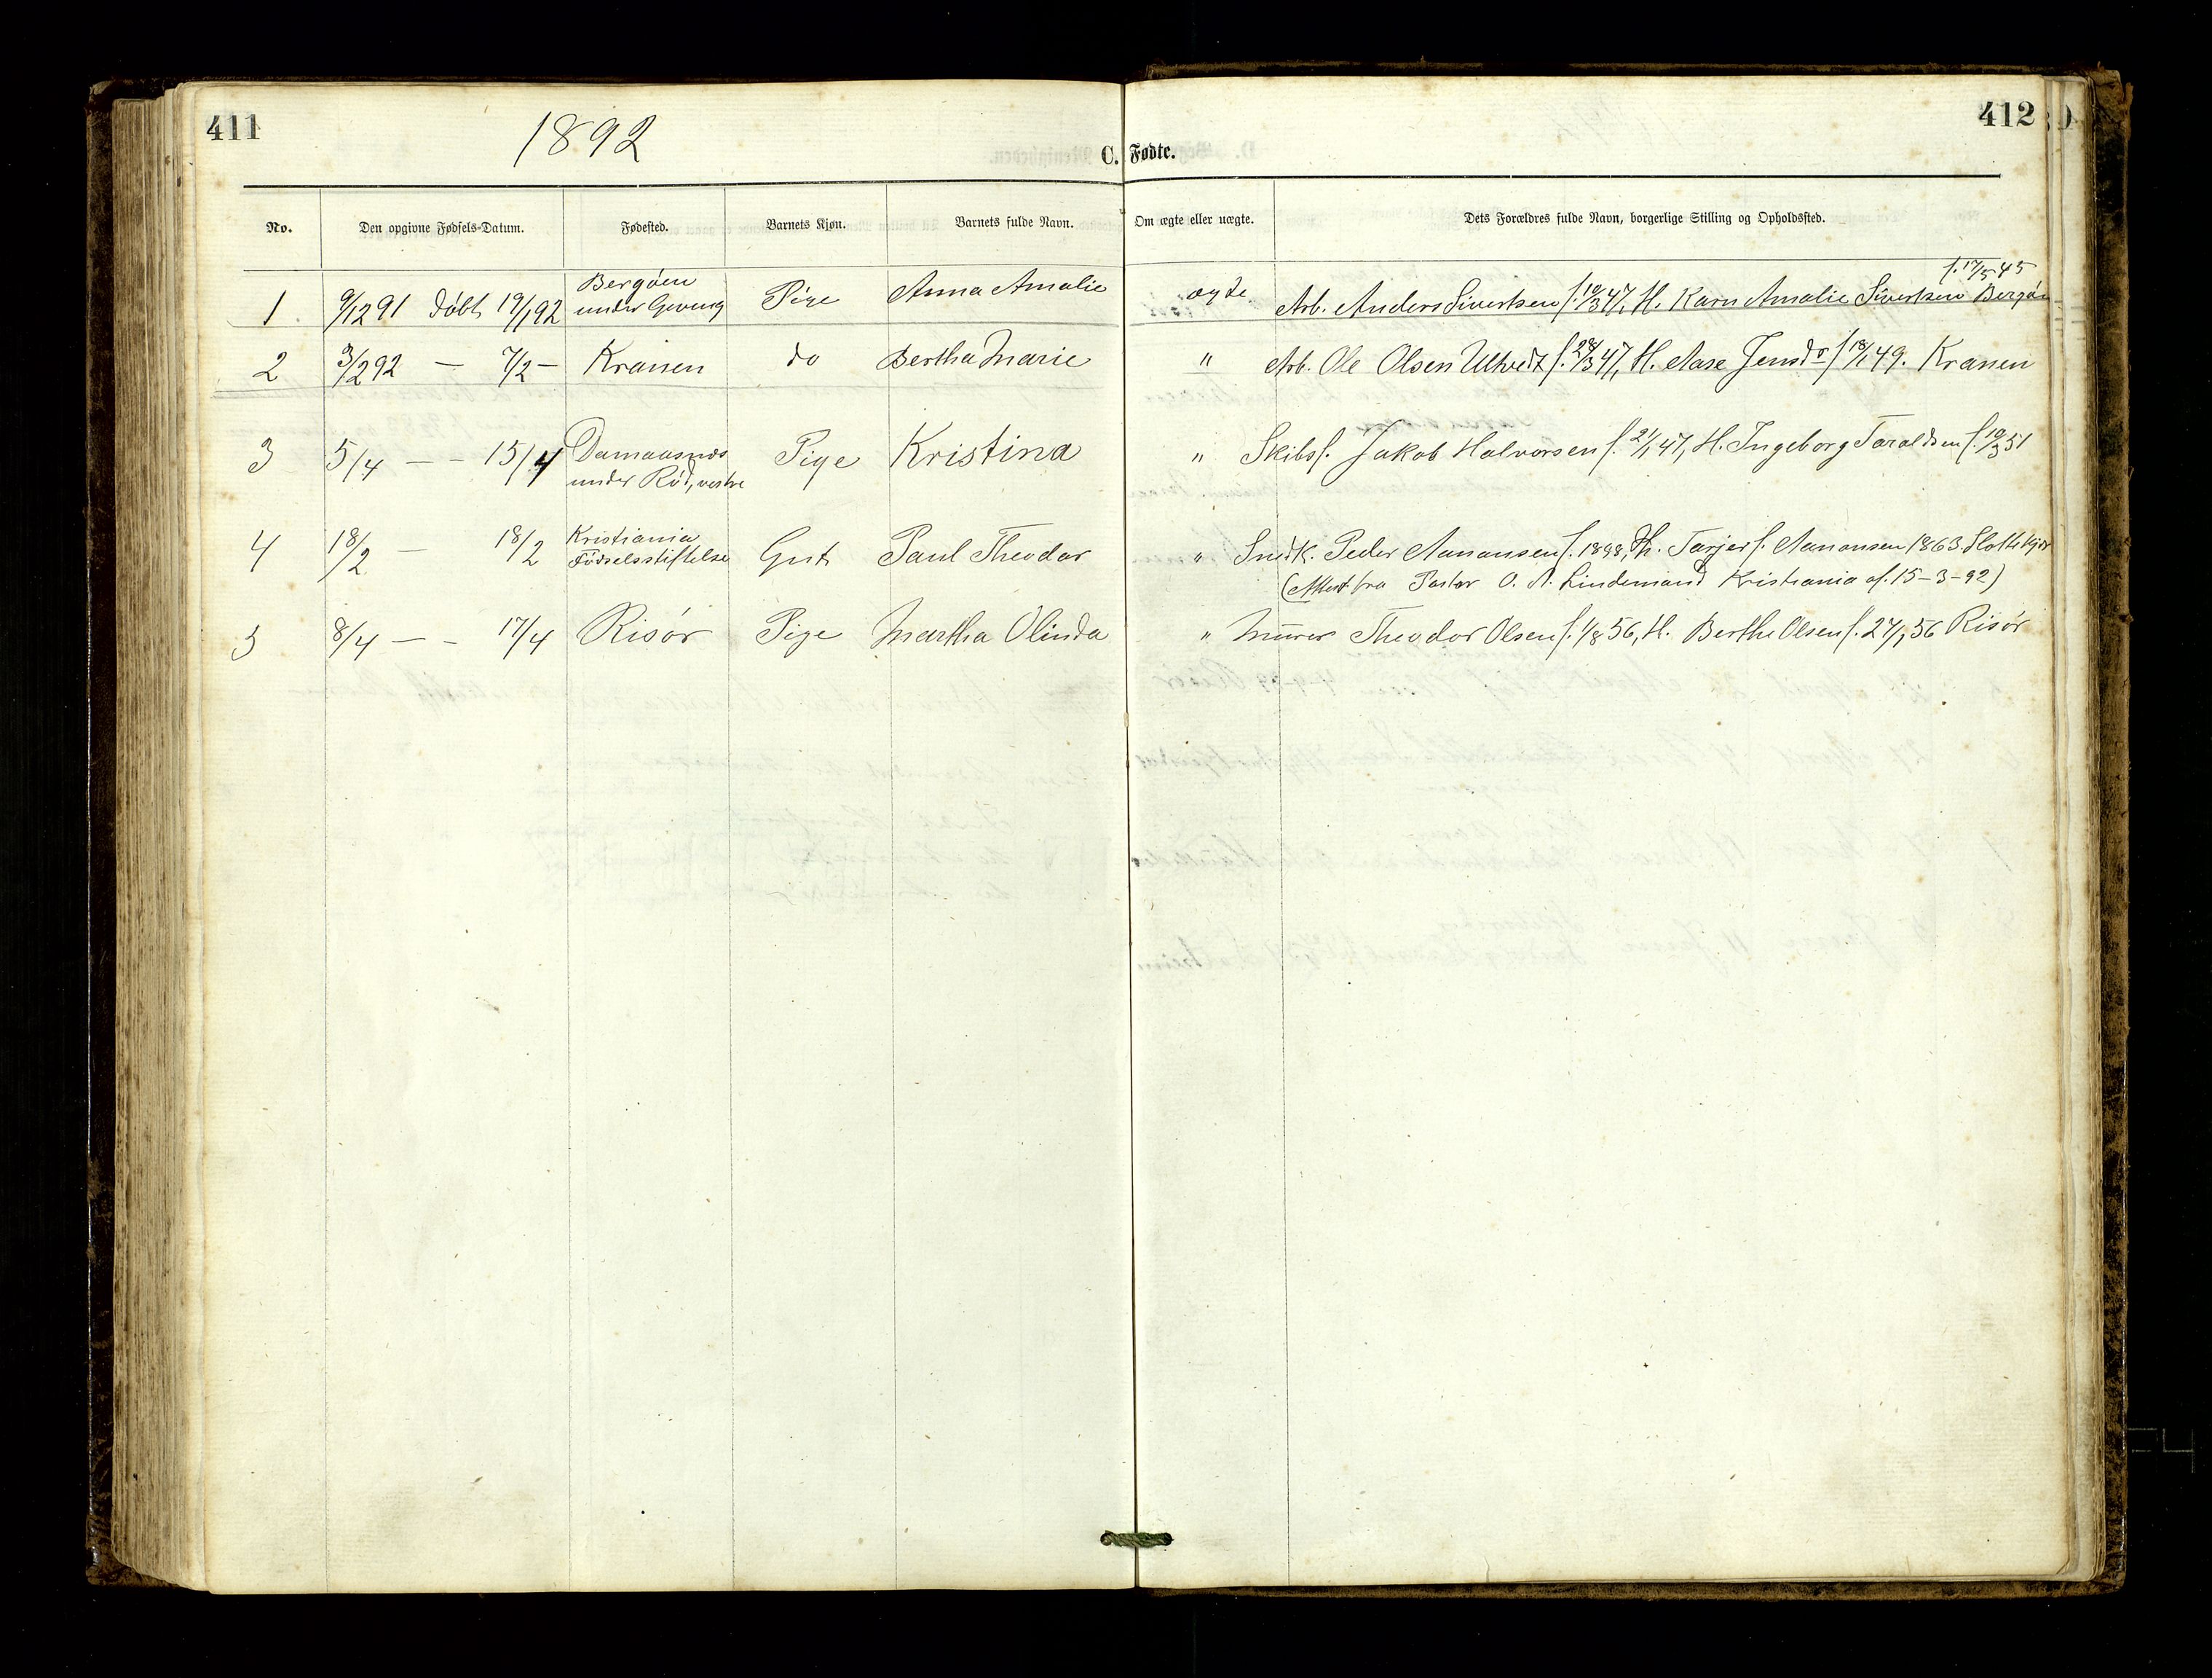 411
1892
412
C. Fødte.
No. Den opgivne Fødsels-Datum. Fødested. Barnets Kjøn. Barnets fulde Navn. Om ægte eller uægte. Dets Forældres fulde Navn, borgerlige Stilling og Opholdssted.
Bergøen f. 17/5 45
1 9/12 91 Døbt 19/1 92 under Gjeving Pige Anna Amalie ægte Arb. Anders Sivertsen f. 10/3 47, H. Karn Amalie Sivertsen Bergøn
2 3/2 92 — 7/2 — Kranen do Bertha Marie " Arb. Ole Olsen Ultvedt f. 28/3 47, H. Aase Jensdr f 18/1 49. Kranen
3 5/4 — - 15/4 Damaasnæs Pige Kristina " Skibsf. Jakob Halvorsen f. 21/1 47, H. Ingeborg Taraldsen f. 10/3 51
under Rød, vestre
4 18/2 — 18/2 Kristiania Gut Paul Theodor " Snedk. Peder Aanonsen f. H. Tarjer f. Aanonsen 1863.
Födselsstiftelse (Attest fra Pastor O. A. Lindemand Kristiania af. 15-3-92)
5 8/4 — - 17/4 Risør Pige Martha Olinda " Murer Theodor Olsen f. 1/8 56, H. Berthe Olsen f. 27/1 56 Risør